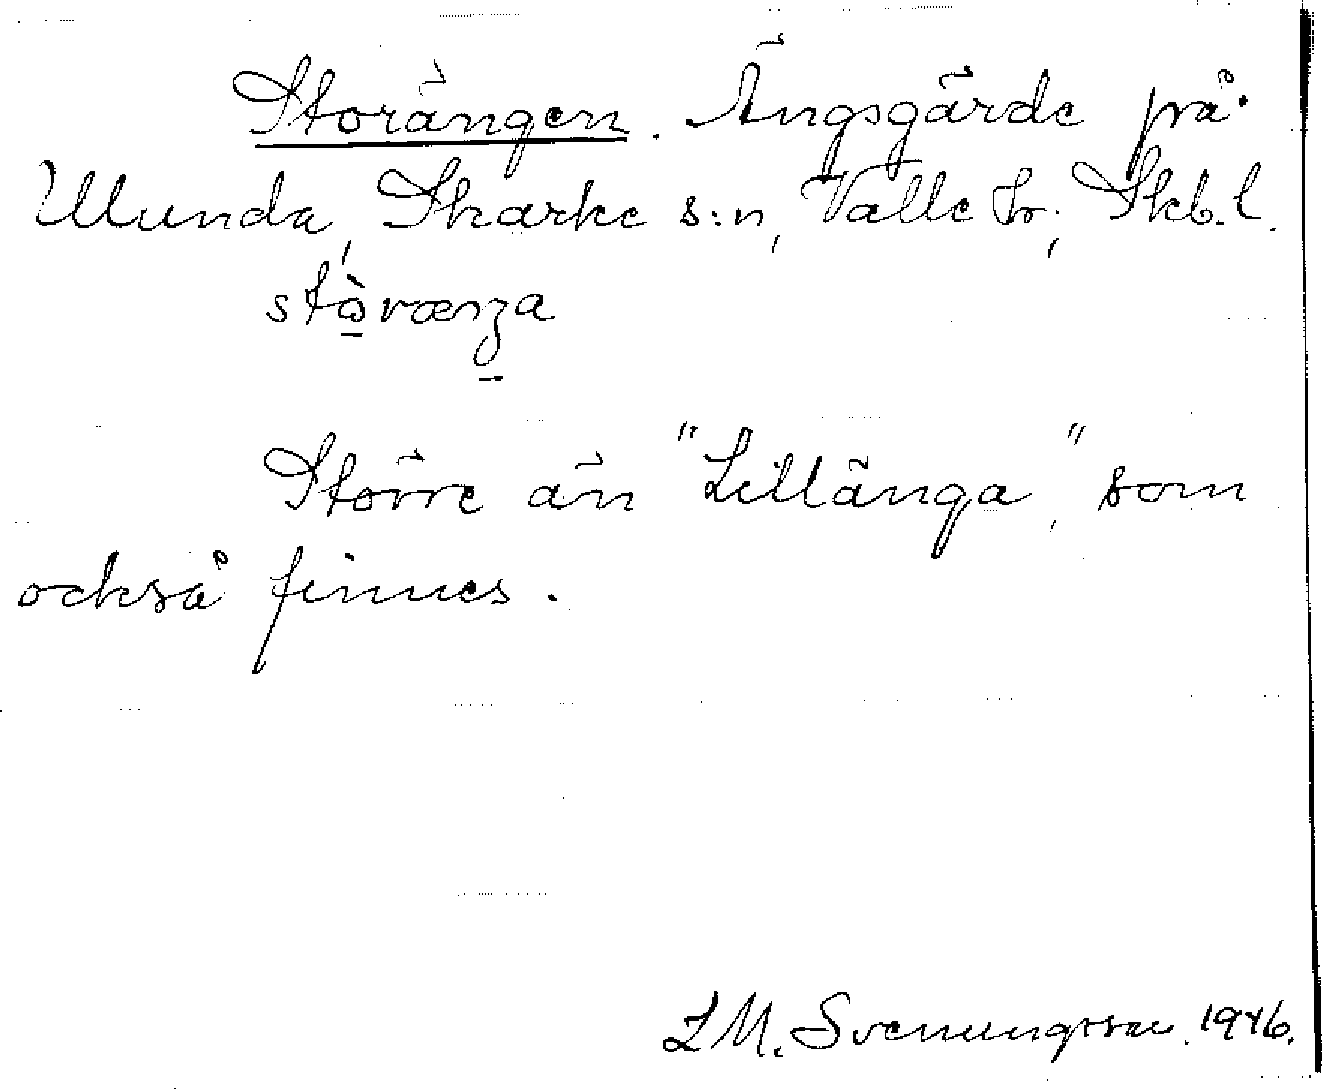 Storängen. Ängsgärde på
Ulunda, Skarke s:n, Valle hr; Skb.l.
stòrænga
Större än "Lillänga", som
också finnes.
L M. Svenungsson. 1946.